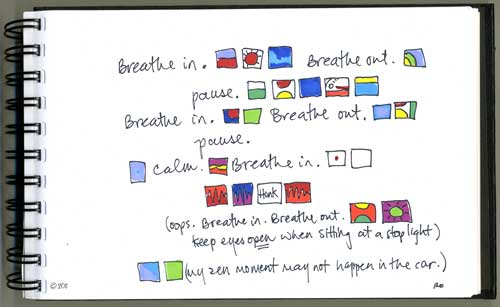 Breathe in. Breathe out.
pause.
Breathe in. Breathe out.
pause.
calm. Breathe in.
Honk
(oops. Breathe in. Breathe out.
keep eyes open when sitting at a stop light)
(my zen moment may not happen in the car.)
© 2011